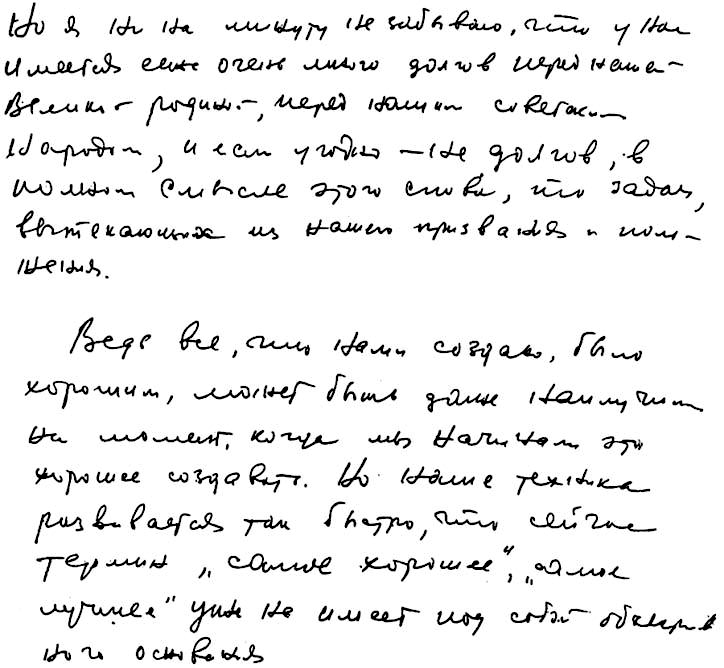 Но я ни на минуту не забываю, что у нас
имеется еще очень много долгов перед наше-
Великой родиной, перед нашим советским
Народом, и если угодно — не долгов, в
полном смысле этого слова, то задач,
вытекающих из нашего призвания и поло-
жения.
Ведь все, что нами создано, было
хорошим, может быть даже наилучшим
на момент, когда мы начинали это
хорошее создавать. Но наша техника
развивается так быстро, что сейчас
термин „самое хорошее“, „самое
лучшее“ уже не имеет под собой
ного основания